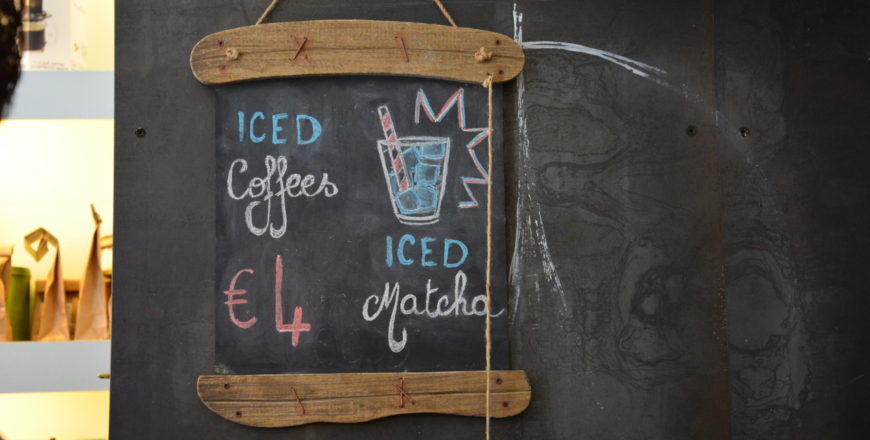 ICED
Coffees
€4
ICED
Matcha